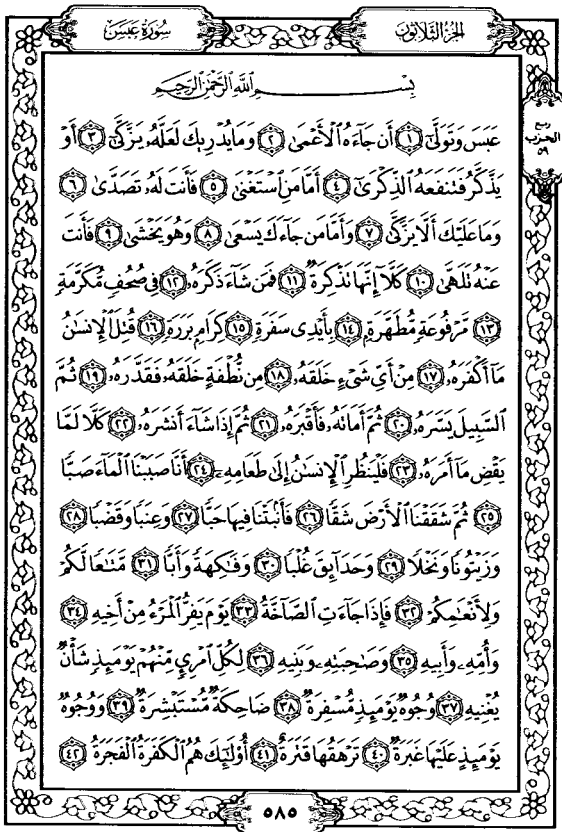 سُورَةُ عَبَسَ
الجُزْءُ الثَّلَاثُونَ
بِسْمِ ٱللَّهِ ٱلرَّحْمَٰنِ ٱلرَّحِيمِ
ربع
الحزب
٥٩
عَبَسَ وَتَوَلَّىٰٓ ١ أَن جَآءَهُ ٱلْأَعْمَىٰ ٢ وَمَا يُدْرِيكَ لَعَلَّهُۥ يَزَّكَّىٰٓ ٣ أَوْ
يَذَّكَّرُ فَتَنفَعَهُ ٱلذِّكْرَىٰٓ ٤ أَمَّا مَنِ ٱسْتَغْنَىٰ ٥ فَأَنتَ لَهُۥ تَصَدَّىٰ ٦
وَمَا عَلَيْكَ أَلَّا يَزَّكَّىٰ ٧ وَأَمَّا مَن جَآءَكَ يَسْعَىٰ ٨ وَهُوَ يَخْشَىٰ ٩ فَأَنتَ
عَنْهُ تَلَهَّىٰ ١٠ كَلَّآ إِنَّهَا تَذْكِرَةٌ ١١ فَمَن شَآءَ ذَكَرَهُۥ ١٢ فِى صُحُفٍ مُّكَرَّمَةٍ
١٣ مَّرْفُوعَةٍ مُّطَهَّرَةٍۭ ١٤ بِأَيْدِى سَفَرَةٍ ١٥ كِرَامٍۭ بَرَرَةٍ ١٦ قُتِلَ ٱلْإِنسَٰنُ
مَآ أَكْفَرَهُۥ ١٧ مِنْ أَىِّ شَىْءٍ خَلَقَهُۥ ١٨ مِن نُّطْفَةٍ خَلَقَهُۥ فَقَدَّرَهُۥ ١٩ ثُمَّ
ٱلسَّبِيلَ يَسَّرَهُۥ ٢٠ ثُمَّ أَمَاتَهُۥ فَأَقْبَرَهُۥ ٢١ ثُمَّ إِذَا شَآءَ أَنشَرَهُۥ ٢٢ كَلَّا لَمَّا
يَقْضِ مَآ أَمَرَهُۥ ٢٣ فَلْيَنظُرِ ٱلْإِنسَٰنُ إِلَىٰ طَعَامِهِۦٓ ٢٤ أَنَّا صَبَبْنَا ٱلْمَآءَ صَبًّا
٢٥ ثُمَّ شَقَقْنَا ٱلْأَرْضَ شَقًّا ٢٦ فَأَنۢبَتْنَا فِيهَا حَبًّا ٢٧ وَعِنَبًا وَقَضْبًا ٢٨
وَزَيْتُونًا وَنَخْلًا ٢٩ وَحَدَآئِقَ غُلْبًا ٣٠ وَفَٰكِهَةً وَأَبًّا ٣١ مَّتَٰعًا لَّكُمْ
وَلِأَنْعَٰمِكُمْ ٣٢ فَإِذَا جَآءَتِ ٱلصَّآخَّةُ ٣٣ يَوْمَ يَفِرُّ ٱلْمَرْءُ مِنْ أَخِيهِ ٣٤
وَأُمِّهِۦ وَأَبِيهِ ٣٥ وَصَٰحِبَتِهِۦ وَبَنِيهِ ٣٦ لِكُلِّ ٱمْرِئٍ مِّنْهُمْ يَوْمَئِذٍ شَأْنٌ
يُغْنِيهِ ٣٧ وُجُوهٌ يَوْمَئِذٍ مُّسْفِرَةٌ ٣٨ ضَاحِكَةٌ مُّسْتَبْشِرَةٌ ٣٩ وَوُجُوهٌ
يَوْمَئِذٍ عَلَيْهَا غَبَرَةٌ ٤٠ تَرْهَقُهَا قَتَرَةٌ ٤١ أُو۟لَٰٓئِكَ هُمُ ٱلْكَفَرَةُ ٱلْفَجَرَةُ ٤٢
٥٨٥